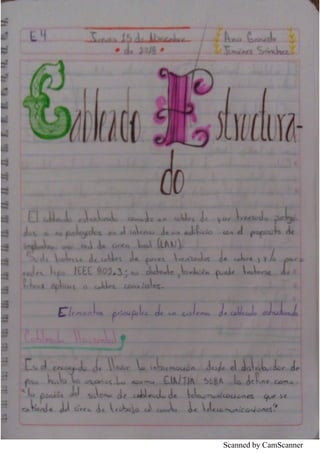 E4
Jueves 15 de Noviembre
• de 2018 •
Ana
Jiménez Sánchez
Cableado Estructura-
do
El cableado estructurado consiste en cables de par trenzado protegi-
dos o no protegidos en el interior de un edificio con el propósito de
implantar una red de área local (LAN).
Suele tratarse de cables de pares trenzados de cobre, y/o para
redes tipo IEEE 802.3; no obstante, también puede tratarse de
fibras ópticas o cables coaxiales.
Elementos principales de un sistema de cableado estructurado
Cableado Horizontal
Es el encargado de llevar la información desde el distribuidor de
piso hasta los usuarios. La norma EIA/TIA 568A la define como:
"la porción del sistema de cableado de telecomunicaciones que se
extiende del área de trabajo al cuarto de telecomunicaciones"
Scanned by CamScanner